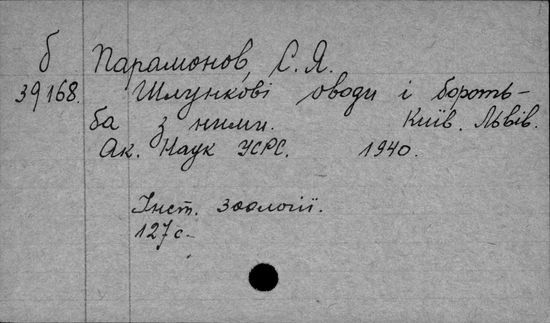 б Парамонов, С. Я.
39168. Шлункові оводи і бороть-
ба з ними. Київ. Львів.
Ак. Наук УСРС. 1940.
Інст. зоології.
127 с.